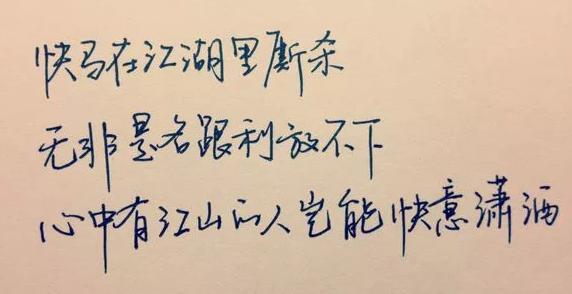 快马在江湖里厮杀
无非是名跟利放不下
心中有江山的人岂能快意潇洒